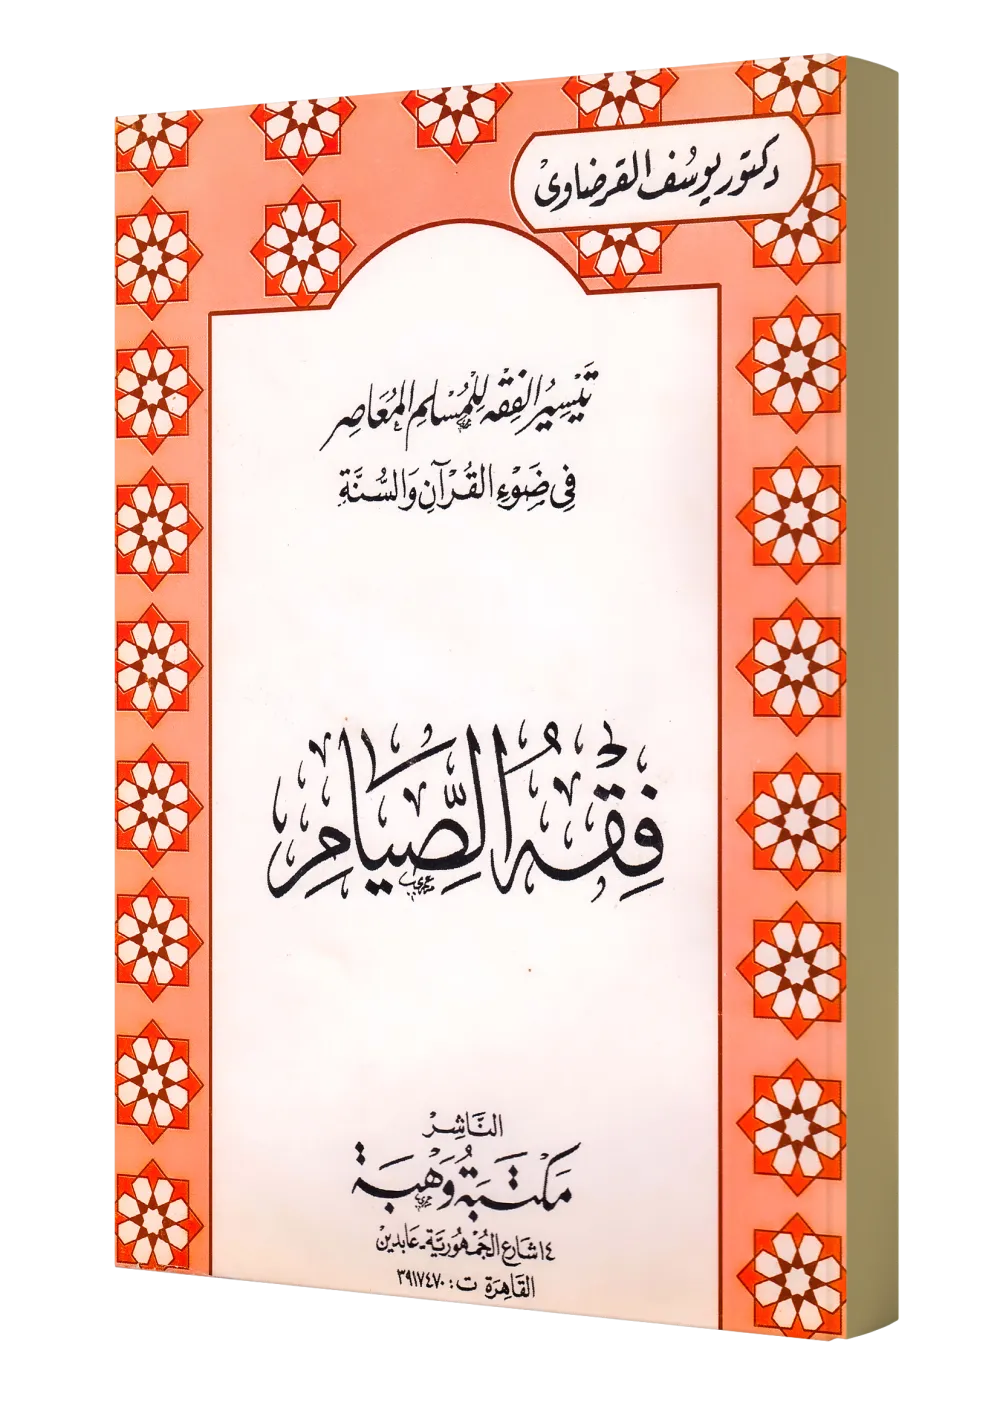 دكتور يوسف القرضاوى
تَيْسِيرُ الفِقْه لِلْمُسْلِم المُعَاصِر
فِي ضَوْءِ القُرْآنِ وَالسُّنَّةِ
فِقْهُ الصِّيَامِ
النَّاشِرْ
مَكْتَبَةُ وَهْبَة
١٤ شَارع الجُمْهُورِيَّة - عَابدِينْ
القَاهِرَة ت : ٣٩١٧٤٧٠